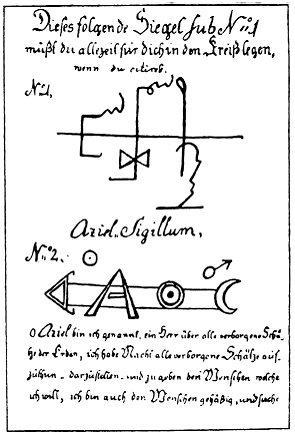 Dieses folgende Siegel sub N⁰1
mußt du allezeit für dich in den Kreiß legen,
wenn du citirest.
N⁰1,
Aziel.. Sigillum,
N⁰2.
O Aziel bin ich genannt, ein Herr über alle verborgene Schä-
tze der Erden, ich habe Macht alle verborgene Schätze auf-
zuthun - darzustellen - und zu geben den Menschen welche
ich will, ich bin auch den Menschen gehäßig, und